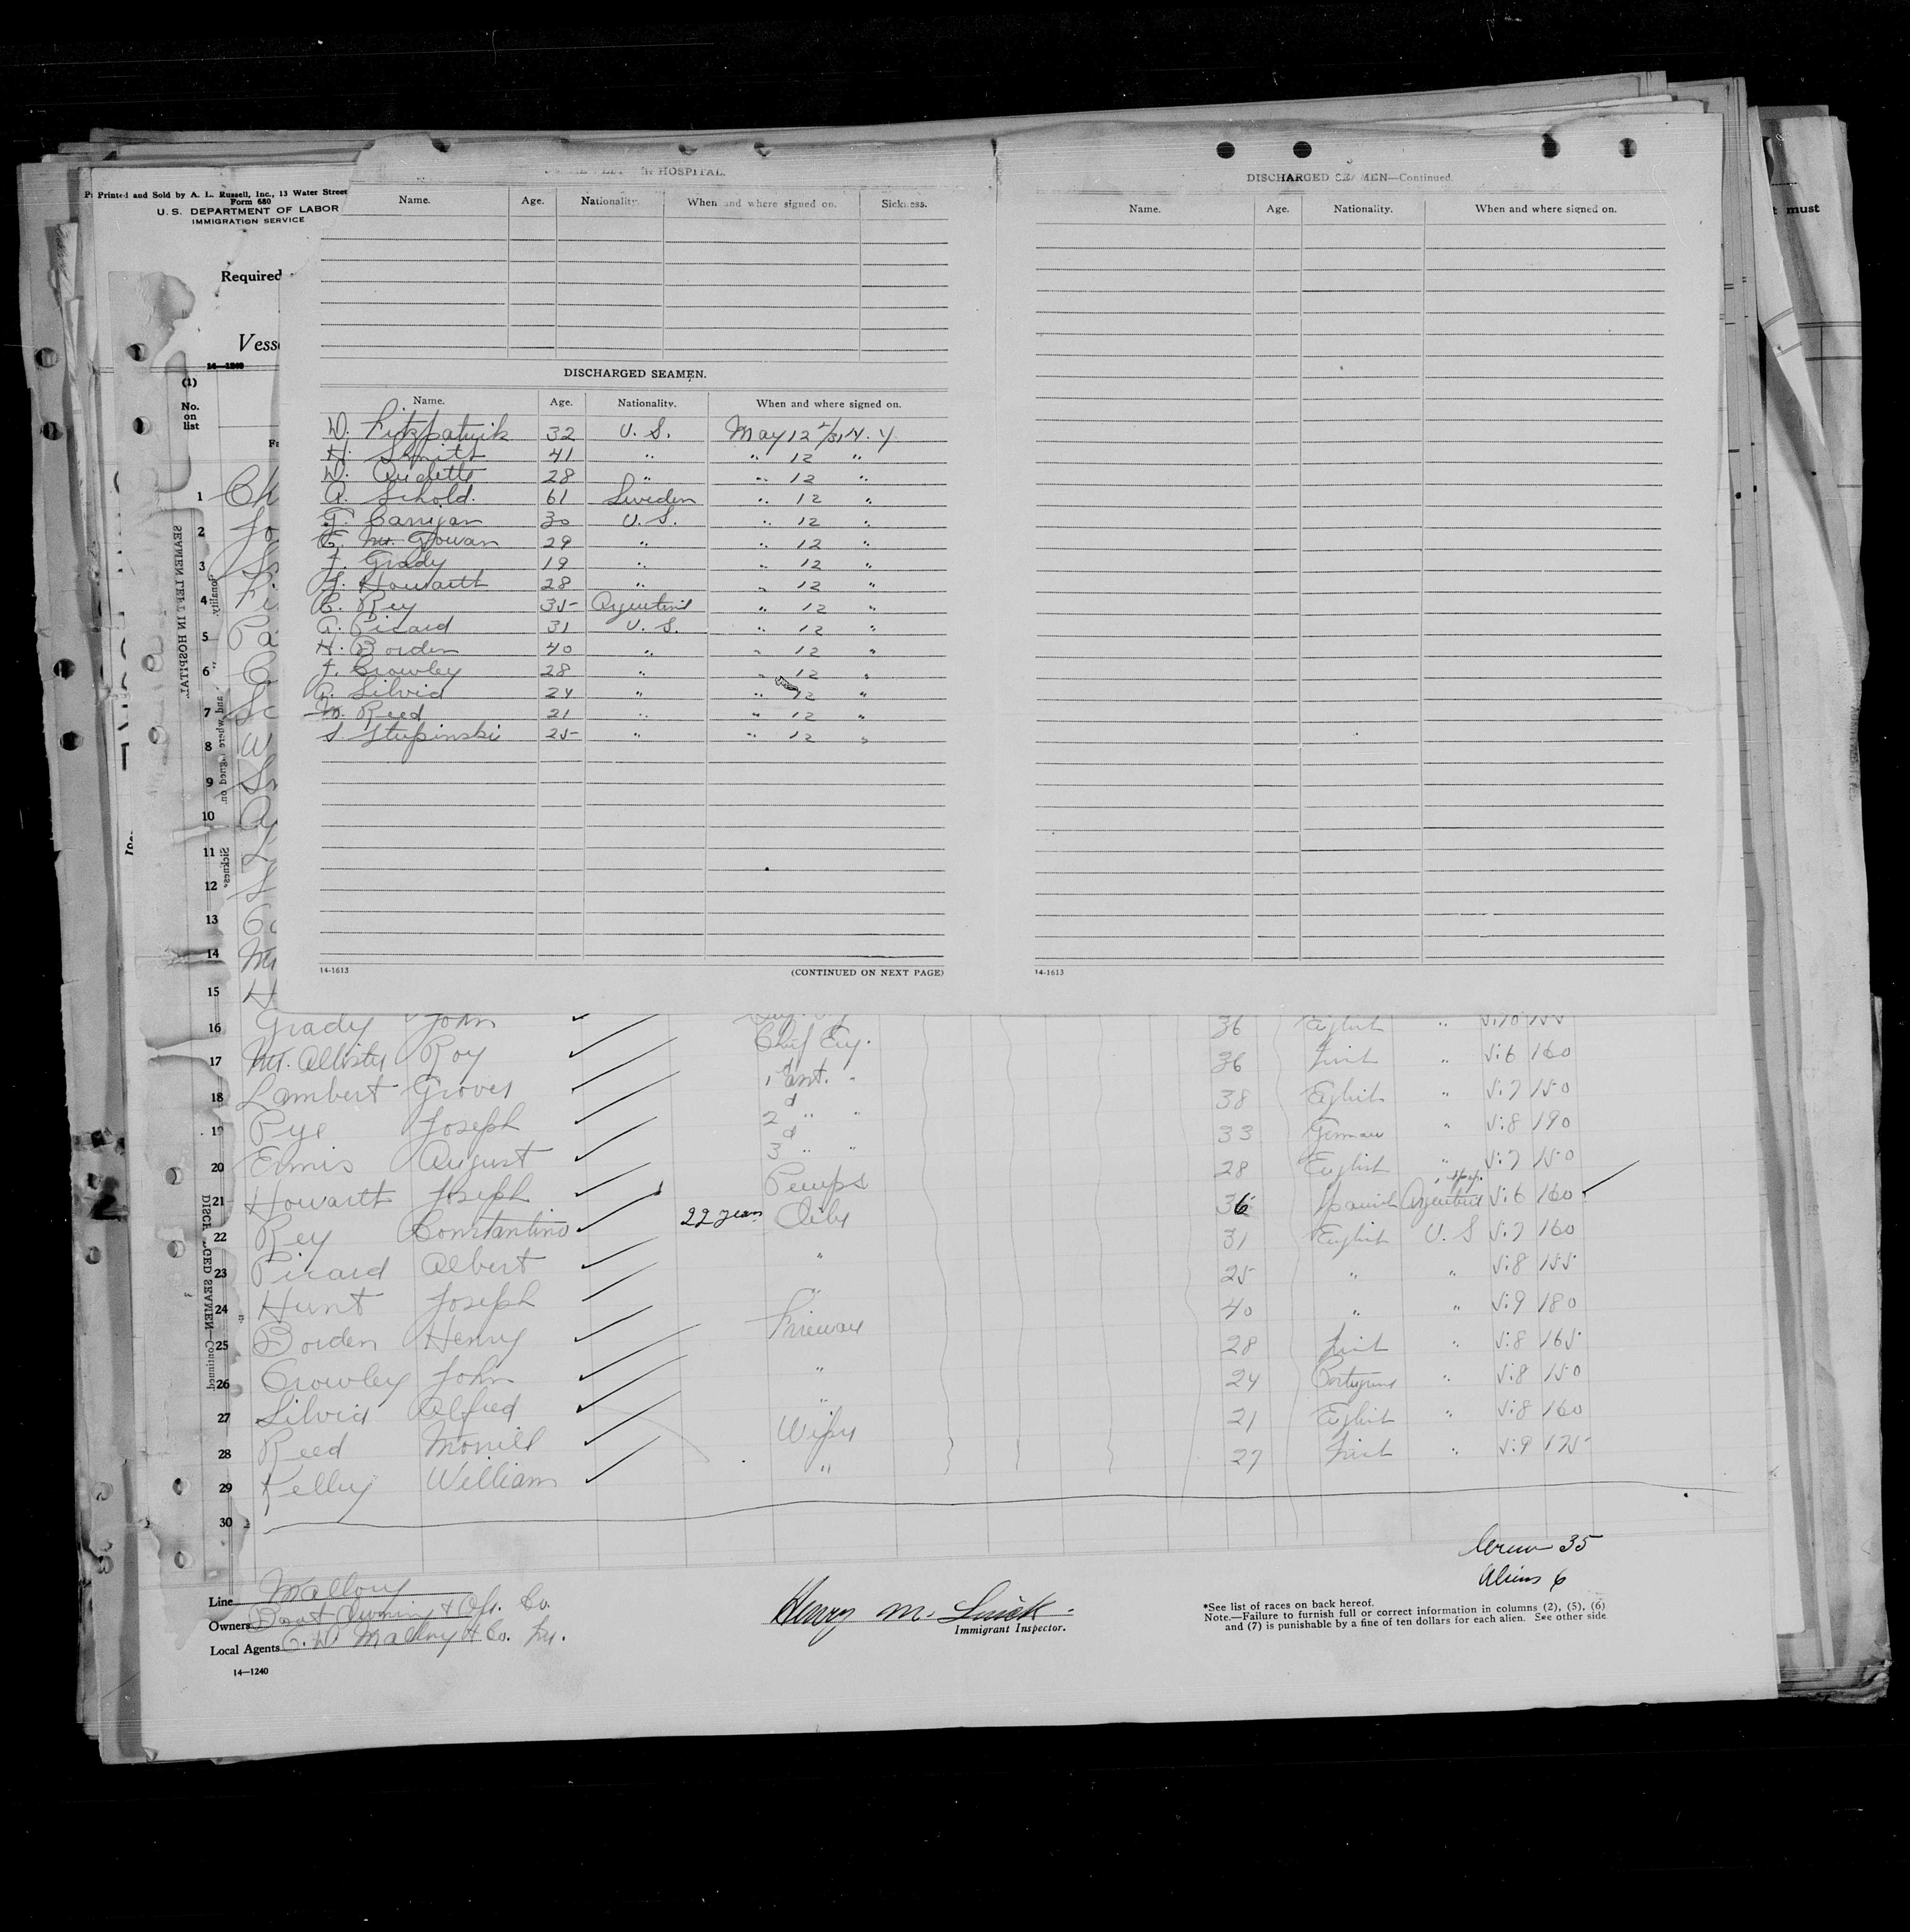 Printed and Sold by A. L. Russell, Inc., 13 Water Street
Form 680
U. S. DEPARTMENT OF LABOR
IMMIGRATION SERVICE
Required
Vess
14—1240
(1)
No.
on
list
HOSPITAL.
Name. Age. Nationality. When and where signed on. Sickness.
DISCHARGED SEAMEN.
Name. Age. Nationality. When and where signed on.
W. Fitzpatrick 32 U. S. May 12
H. Smith 41 " " 12 "
W. 28 " " 12 "
A. Schold. 61 Sweden " 12 "
Carrigan 30 U. S. " 12 "
Mc. Gowan 29 " " 12 "
J. Grady 19 " " 12 "
J. Howarth 28 " " 12 "
C. Rey 35 Argentine " 12 "
A. Picard 31 U. S. " 12 "
H. Borden 40 " " 12 "
J. Crowley 28 " " 12 "
A. Silvia 24 " " 12 "
M. Reed 21 " " 12 "
S. Stupinski 25 " " 12 "
14-1613 (CONTINUED ON NEXT PAGE)
DISCHARGED SEAMEN—Continued.
Name. Age. Nationality. When and where signed on.
14-1613
must
SEAMEN LEFT IN HOSPITAL.
DISCHARGED SEAMEN—Continued
1 Ch
2 Jo
3
4 Fi
5 Pa
6
7 Sc
8 W
9
10
11
12
13
14
15 H
16 Grady John 36 English "
17 Mc. Allister Roy Chief Eng. 36 Irish " 5:6 160
18 Lambert Grover 1 Asst. " 38 English " 5:7 150
19 Pye Joseph 2d " " 33 German " 5:8 190
20 Ennis August 3d " " 28 English " 5:7 150
21 Howarth Joseph Pumps 36 Spanish Argentine 5:6 160
22 Rey Constantino 22 years Oiler 31 English U. S 5:7 160
23 Picard Albert " 25 " " 5:8 155
24 Hunt Joseph " 40 " " 5:9 180
25 Borden Henry Fireman 28 Irish " 5:8 165
26 Crowley John " 24 Portuguese " 5:8 150
27 Silvia Alfred " 21 English " 5:8 160
28 Reed Morrill Wiper 27 Irish " 5:9 175
29 Kelley William "
30
Crew 35
Aliens 6
Line Mallory
Owners & Co.
Local Agents C. D. Mallory & Co. Inc.
14—1240
Henry M.
Immigrant Inspector.
*See list of races on back hereof.
Note.—Failure to furnish full or correct information in columns (2), (5), (6)
and (7) is punishable by a fine of ten dollars for each alien. See other side